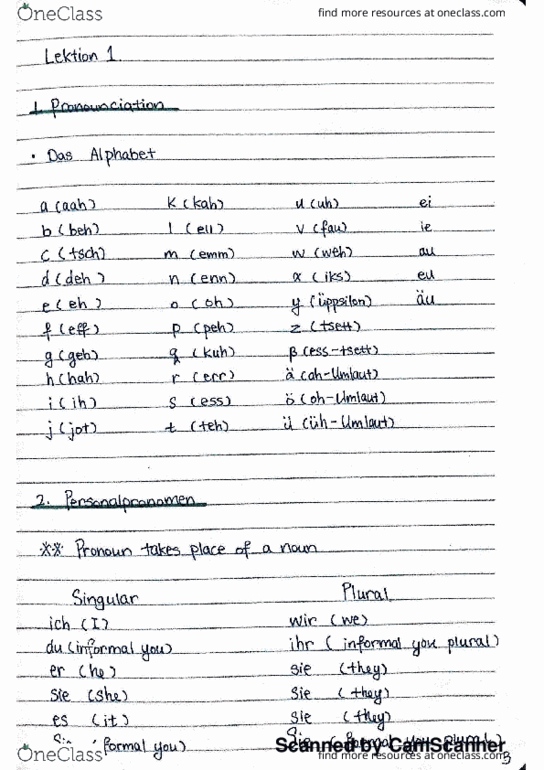 OneClass find more resources at oneclass.com
Lektion 1.
1. Pronounciation
• Das Alphabet
a (aah) k (kah) u (uh) ei
b (beh) l (ell) v (fau) ie
c (tsch) m (emm) w (weh) au
d (deh) n (enn) x (iks) eu
e (eh) o (oh) y (üppsilon) äu
f (eff) p (peh) z (tsett)
g (geh) q (kuh) β (ess-tsett)
h (hah) r (err) ä (ah-Umlaut)
i (ih) s (ess) ö (oh-Umlaut)
j (jot) t (teh) ü (üh-Umlaut)
2. Personalpronomen
** Pronoun takes place of a noun
Singular Plural
ich (I) wir (we)
du (informal you) ihr (informal you plural)
er (he) sie (they)
sie (she) sie (they)
es (it) sie (they)
Sie (formal you) Sie (formal you plural)
Scanned by CamScanner
OneClass find more resources at oneclass.com
3